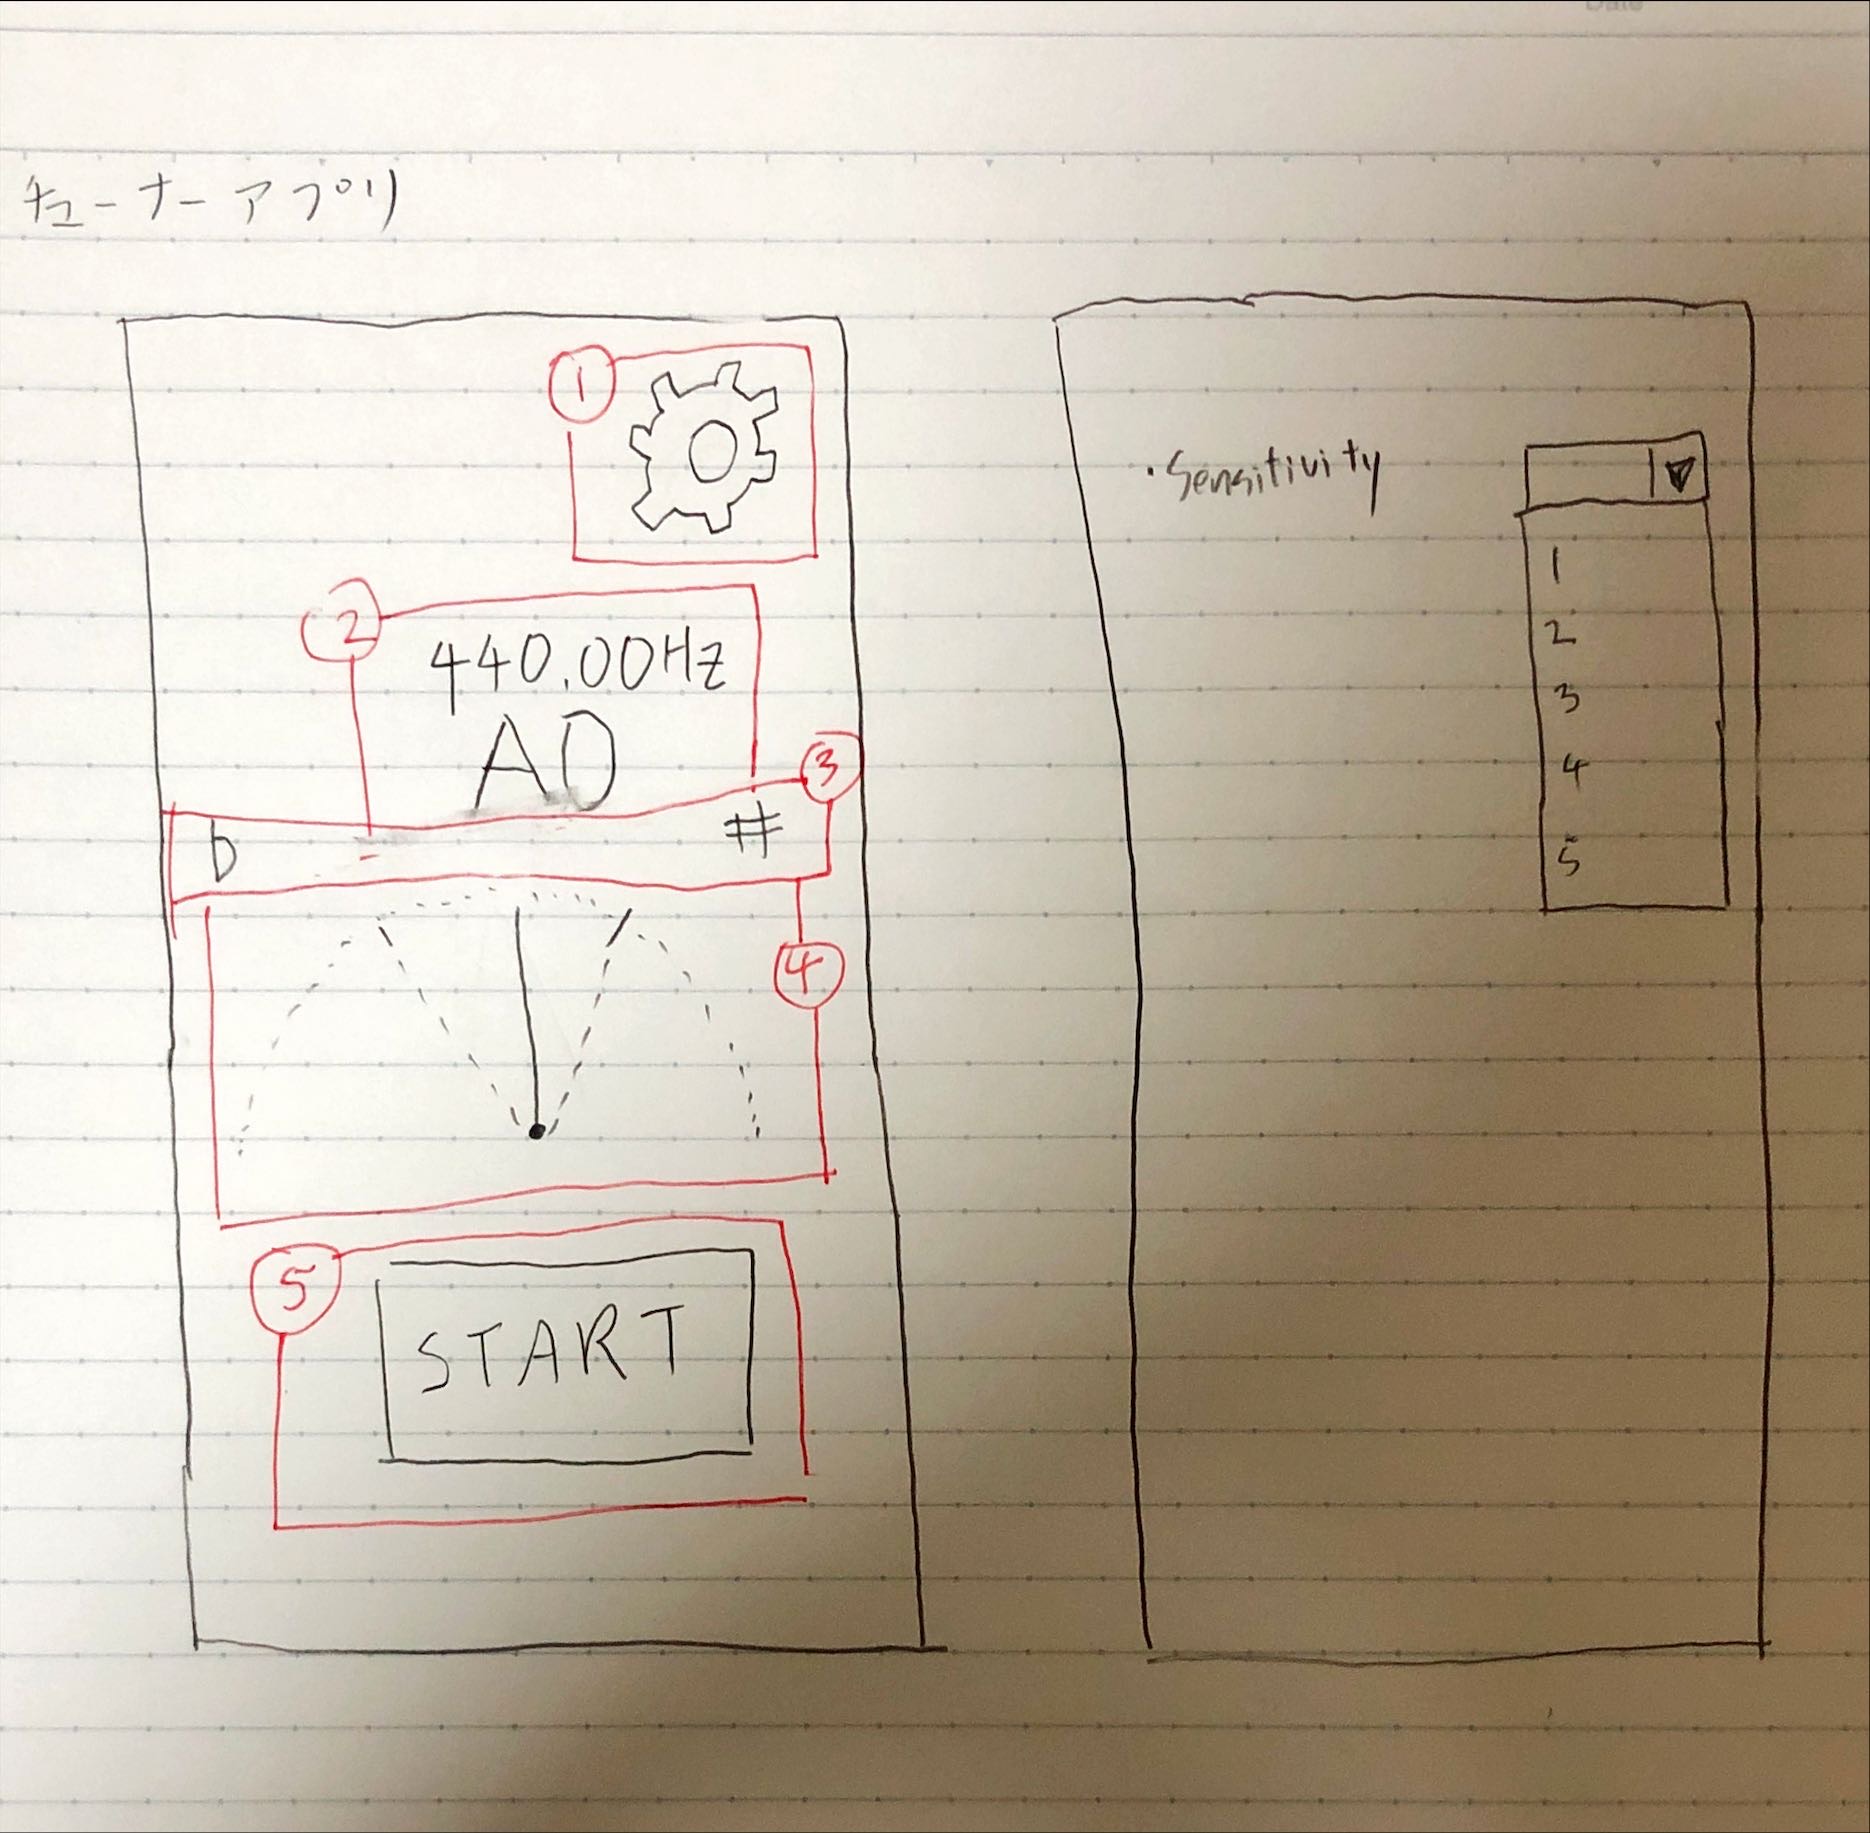 Date
チューナーアプリ
1
2
440.00Hz
A0
3
b #
4
5
START
・Sensitivity ▼
1
2
3
4
5